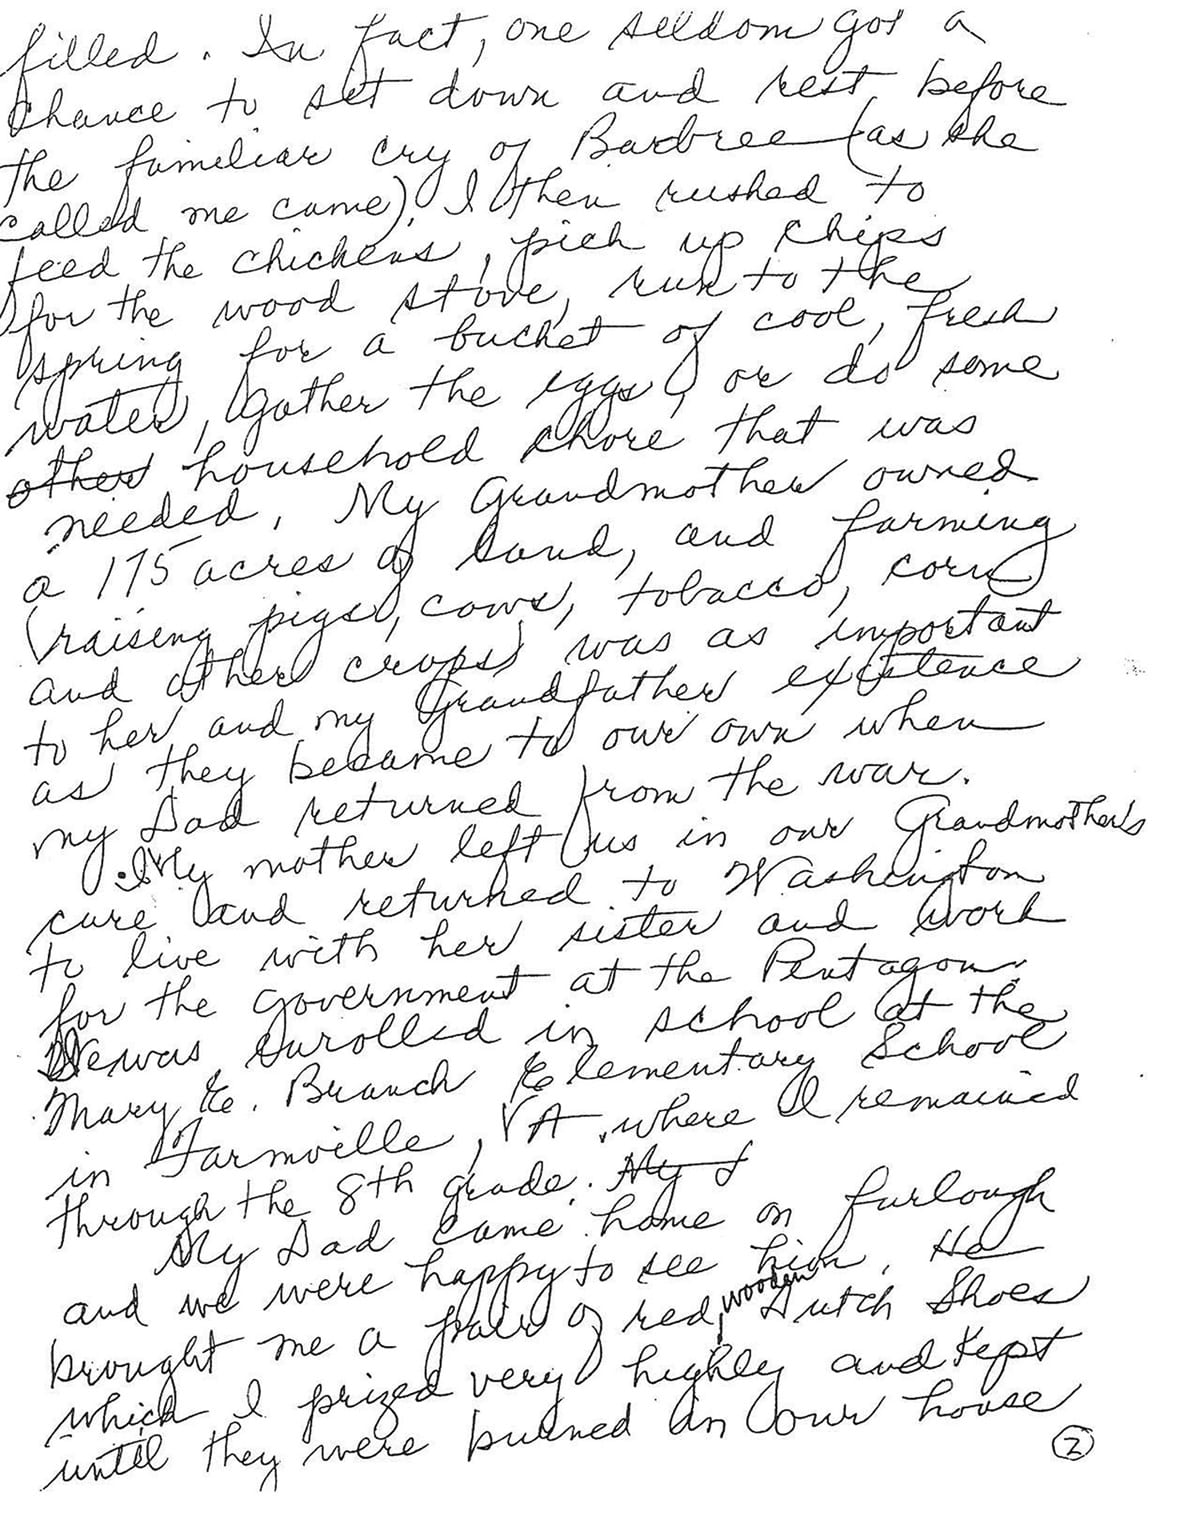 filled. In fact, one seldom got a
chance to set down and rest before
the familiar cry of Barbree (as she
called me came). I then rushed to
feed the chickens, pick up chips
for the wood stove, run to the
spring for a bucket of cool, fresh
water, gather the eggs, or do some
other household chore that was
needed. My Grandmother owned
a 175 acres of land, and farming
(raising pigs, cows, tobacco, corn
and other crops) was as important
to her and my Grandfather existence
as they became to our own when
my Dad returned from the war.
My mother left us in our Grandmother's
care and returned to Washington
to live with her sister and work
for the government at the Pentagon.
We was enrolled in school at the
Mary E. Branch Elementary School
in Farmville, VA. where I remained
through the 8th grade. My
My Dad came home on furlough
and we were happy to see him. He
brought me a pair of red, wooden Dutch Shoes
which I prized very highly and kept
until they were burned in our house
2